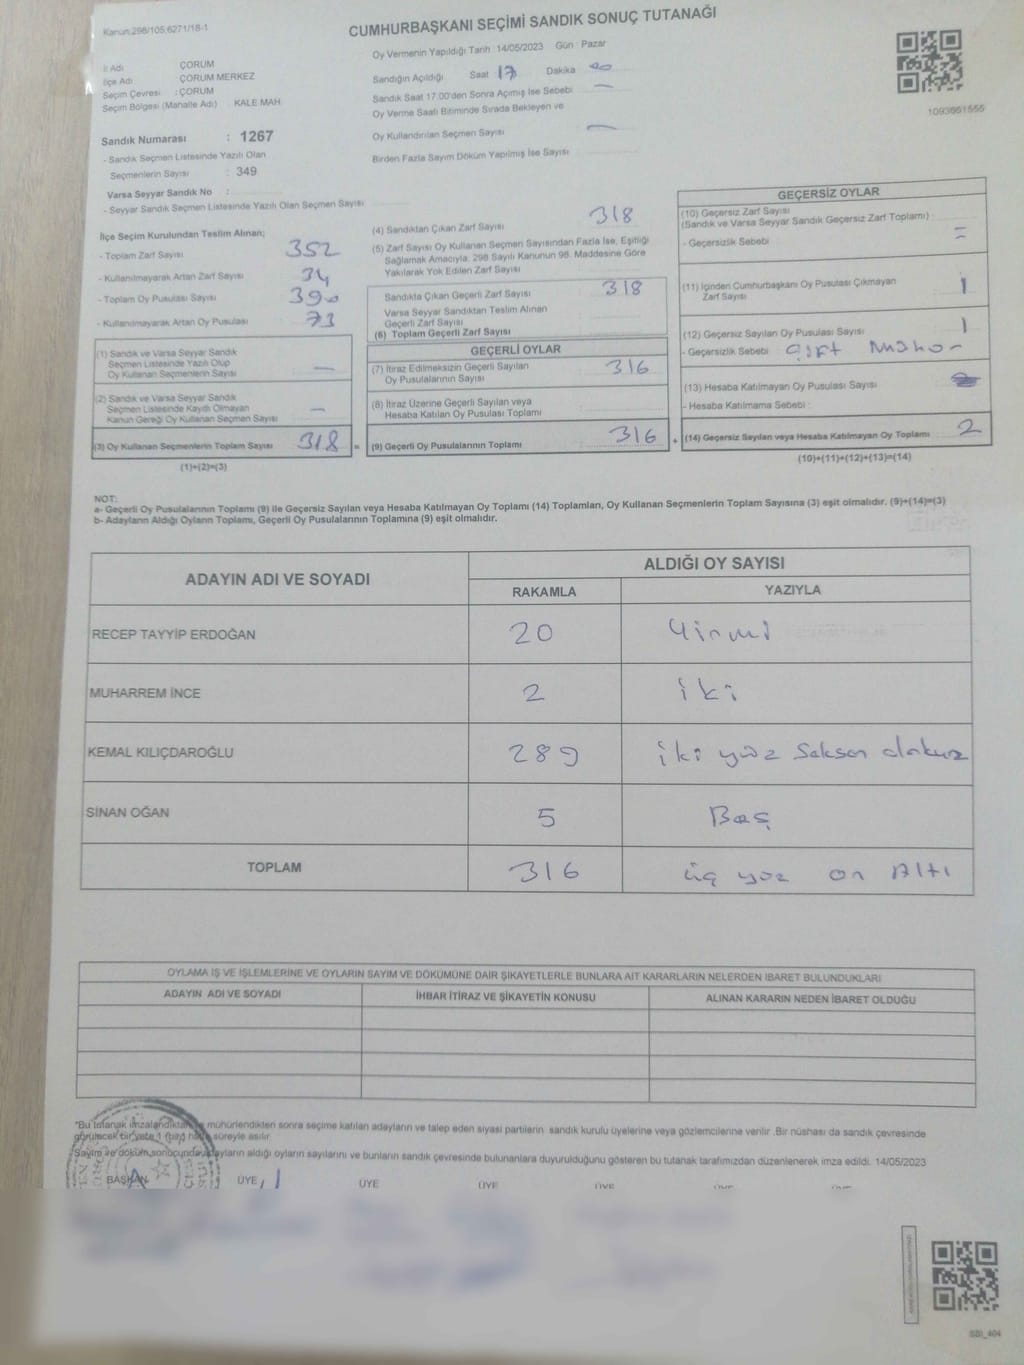 Kanun:298/105;6271/18-1
CUMHURBAŞKANI SEÇİMİ SANDIK SONUÇ TUTANAĞI
İl Adı ÇORUM
İlçe Adı ÇORUM MERKEZ
Seçim Çevresi : ÇORUM
Seçim Bölgesi (Mahalle Adı) KALE MAH
Sandık Numarası : 1267
- Sandık Seçmen Listesinde Yazılı Olan
Seçmenlerin Sayısı : 349
Varsa Seyyar Sandık No :
- Seyyar Sandık Seçmen Listesinde Yazılı Olan Seçmen Sayısı
Oy Vermenin Yapıldığı Tarih :14/05/2023 Gün : Pazar
Sandığın Açıldığı Saat 17 Dakika
Sandık Saat 17:00'den Sonra Açımış İse Sebebi —
Oy Verme Saati Bitiminde Sırada Bekleyen ve
Oy Kullandırılan Seçmen Sayısı —
Birden Fazla Sayım Döküm Yapılmış İse Sayısı
1093661555
İlçe Seçim Kurulundan Teslim Alınan;
- Toplam Zarf Sayısı 352
- Kullanılmayarak Artan Zarf Sayısı 34
- Toplam Oy Pusulası Sayısı 390
- Kullanılmayarak Artan Oy Pusulası 73
(1) Sandık ve Varsa Seyyar Sandık
Seçmen Listesinde Yazılı Olup
Oy Kullanan Seçmenlerin Sayısı —
(2) Sandık ve Varsa Seyyar Sandık
Seçmen Listesinde Kayıtlı Olmayan
Kanun Gereği Oy Kullanan Seçmen Sayısı —
(3) Oy Kullanan Seçmenlerin Toplam Sayısı 318 =
(1)+(2)=(3)
(4) Sandıktan Çıkan Zarf Sayısı 318
(5) Zarf Sayısı Oy Kullanan Seçmen Sayısından Fazla İse, Eşitliği
Sağlamak Amacıyla; 298 Sayılı Kanunun 98. Maddesine Göre
Yakılarak Yok Edilen Zarf Sayısı
Sandıkta Çıkan Geçerli Zarf Sayısı 318
Varsa Seyyar Sandıktan Teslim Alınan
Geçerli Zarf Sayısı
(6) Toplam Geçerli Zarf Sayısı
GEÇERLİ OYLAR
(7) İtiraz Edilmeksizin Geçerli Sayılan
Oy Pusulalarının Sayısı 316
(8) İtiraz Üzerine Geçerli Sayılan veya
Hesaba Katılan Oy Pusulası Toplamı
(9) Geçerli Oy Pusulalarının Toplamı 316 +
GEÇERSİZ OYLAR
(10) Geçersiz Zarf Sayısı
(Sandık ve Varsa Seyyar Sandık Geçersiz Zarf Toplamı) :
- Geçersizlik Sebebi
(11) İçinden Cumhurbaşkanı Oy Pusulası Çıkmayan
Zarf Sayısı 1
(12) Geçersiz Sayılan Oy Pusulası Sayısı 1
- Geçersizlik Sebebi
(13) Hesaba Katılmayan Oy Pusulası Sayısı
- Hesaba Katılmama Sebebi :
(14) Geçersiz Sayılan veya Hesaba Katılmayan Oy Toplamı 2
(10)+(11)+(12)+(13)=(14)
NOT:
a- Geçerli Oy Pusulaları Toplamı (9) ile Geçersiz Sayılan veya Hesaba Katılmayan Oy Toplamı (14) Toplamları, Oy Kullanan Seçmenlerin Toplam Sayısına (3) eşit olmalıdır. (9)+(14)=(3)
b- Adayların Aldığı Oyların Toplamı, Geçerli Oy Pusulalarının Toplamına (9) eşit olmalıdır.
ADAYIN ADI VE SOYADI ALDIĞI OY SAYISI
RAKAMLA YAZIYLA
RECEP TAYYİP ERDOĞAN 20 Yirmi
MUHARREM İNCE 2 iki
KEMAL KILIÇDAROĞLU 289 iki yüz Seksen dokuz
SİNAN OĞAN 5 Beş
TOPLAM 316 üç yüz on Altı
OYLAMA İŞ VE İŞLEMLERİNE VE OYLARIN SAYIM VE DÖKÜMÜNE DAİR ŞİKAYETLERLE BUNLARA AİT KARARLARIN NELERDEN İBARET BULUNDUKLARI
ADAYIN ADI VE SOYADI İHBAR İTİRAZ VE ŞİKAYETİN KONUSU ALINAN KARARIN NEDEN İBARET OLDUĞU
*Bu tutanak imzalandıktan mühürlendikten sonra seçime katılan adayların ve talep eden siyasi partilerin sandık kurulu üyelerine veya gözlemcilerine verilir .Bir nüshası da sandık çevresinde
görülecek bir yere 1 (bir) hafta süreyle asılır.
Sayım ve döküm sonucunda adayların aldığı oyların sayılarını ve bunların sandık çevresinde bulunanlara duyurulduğunu gösteren bu tutanak tarafımızdan düzenlenerek imza edildi. 14/05/2023
BAŞKAN ÜYE ÜYE ÜYE ÜYE
SBI_404